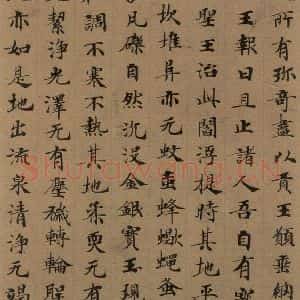 所有珎奇盡以貢王願垂納
王報曰且止諸人吾自有寶
聖王治此閻浮提時其地平
坎堆阜亦无蚊虻蜂蠍蠅蚤
凡礫自然沉沒金銀寶玉現
調不寒不熱其地柔耎无
絜淨光澤无有塵穢轉輪
亦如是地出流泉清淨无竭
Shufawang.CN